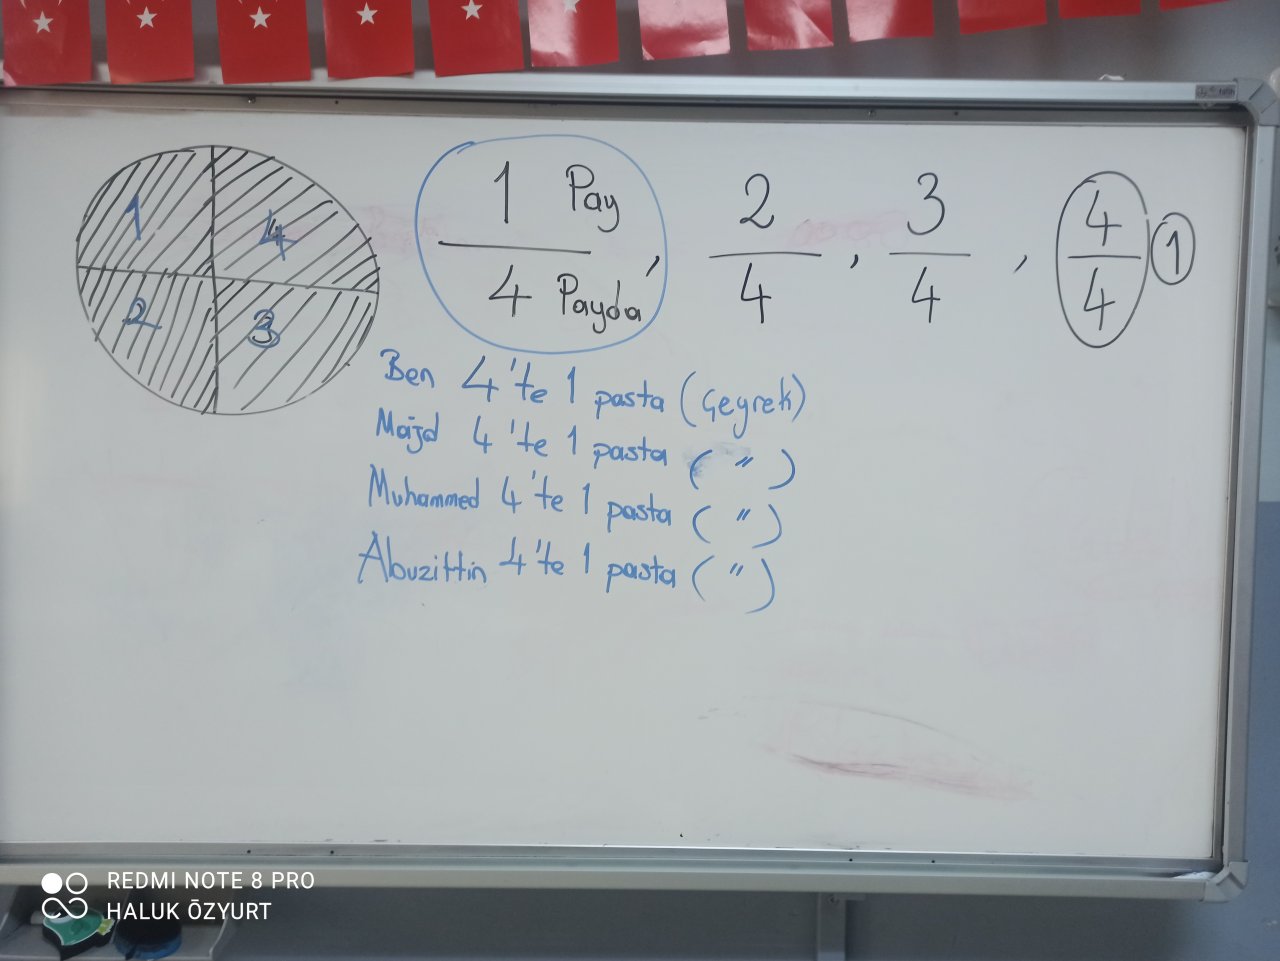 1 4
2 3
1 Pay
4 Payda
, 2/4 , 3/4 , 4/4 1
Ben 4'te 1 pasta (Çeyrek)
Majd 4'te 1 pasta ( " )
Muhammed 4'te 1 pasta ( " )
Abuzittin 4'te 1 pasta ( " )
REDMI NOTE 8 PRO
HALUK ÖZYURT